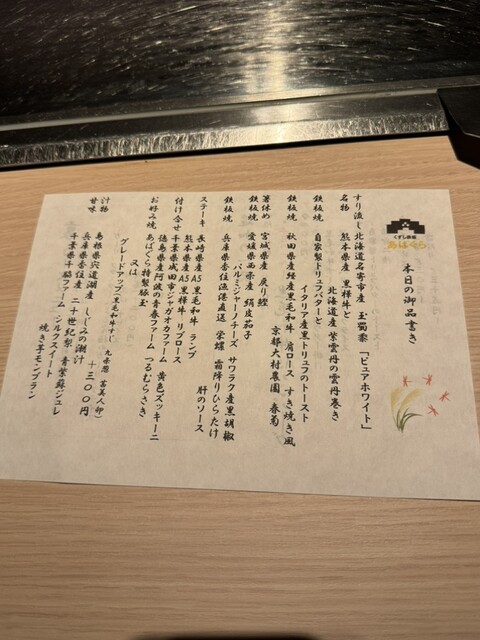 くずし鉄板
あばぐら
本日の御品書き
すり流し 北海道名寄市産 玉蜀黍 「ピュアホワイト」
名物 熊本県産 黒樺牛と
北海道産 紫雲丹の雲丹巻き
鉄板焼 自家製トリュフバターと
イタリア産黒トリュフのトースト
鉄板焼 秋田県産経産黒毛和牛 肩ロース すき焼き風
京都大村農園 春菊
箸休め 宮城県産 戻り鰹
鉄板焼 愛媛県西条産 絹皮茄子
パルミジャーノチーズ サワラク産黒胡椒
鉄板焼 兵庫県香住漁港直送 栄螺 霜降りひらたけ
肝のソース
ステーキ 長崎県産A5黒毛和牛 ランプ
熊本県産A5黒樺牛 リブロース
付け合せ 千葉県成田市ジャガオカファーム 黄色ズッキーニ
徳島県産阿波の青春ファーム つるむらさき
お好み焼 あばぐら特製豚玉
又は
グレードアップ(黒毛和牛すじ、九条葱、富美人卵)
+300円
汁物 島根県宍道湖産 しじみの潮汁
甘味 兵庫県香住産 二十世紀梨 青紫蘇ジュレ
千葉県千脇ファーム シルクスイート
焼き芋モンブラン